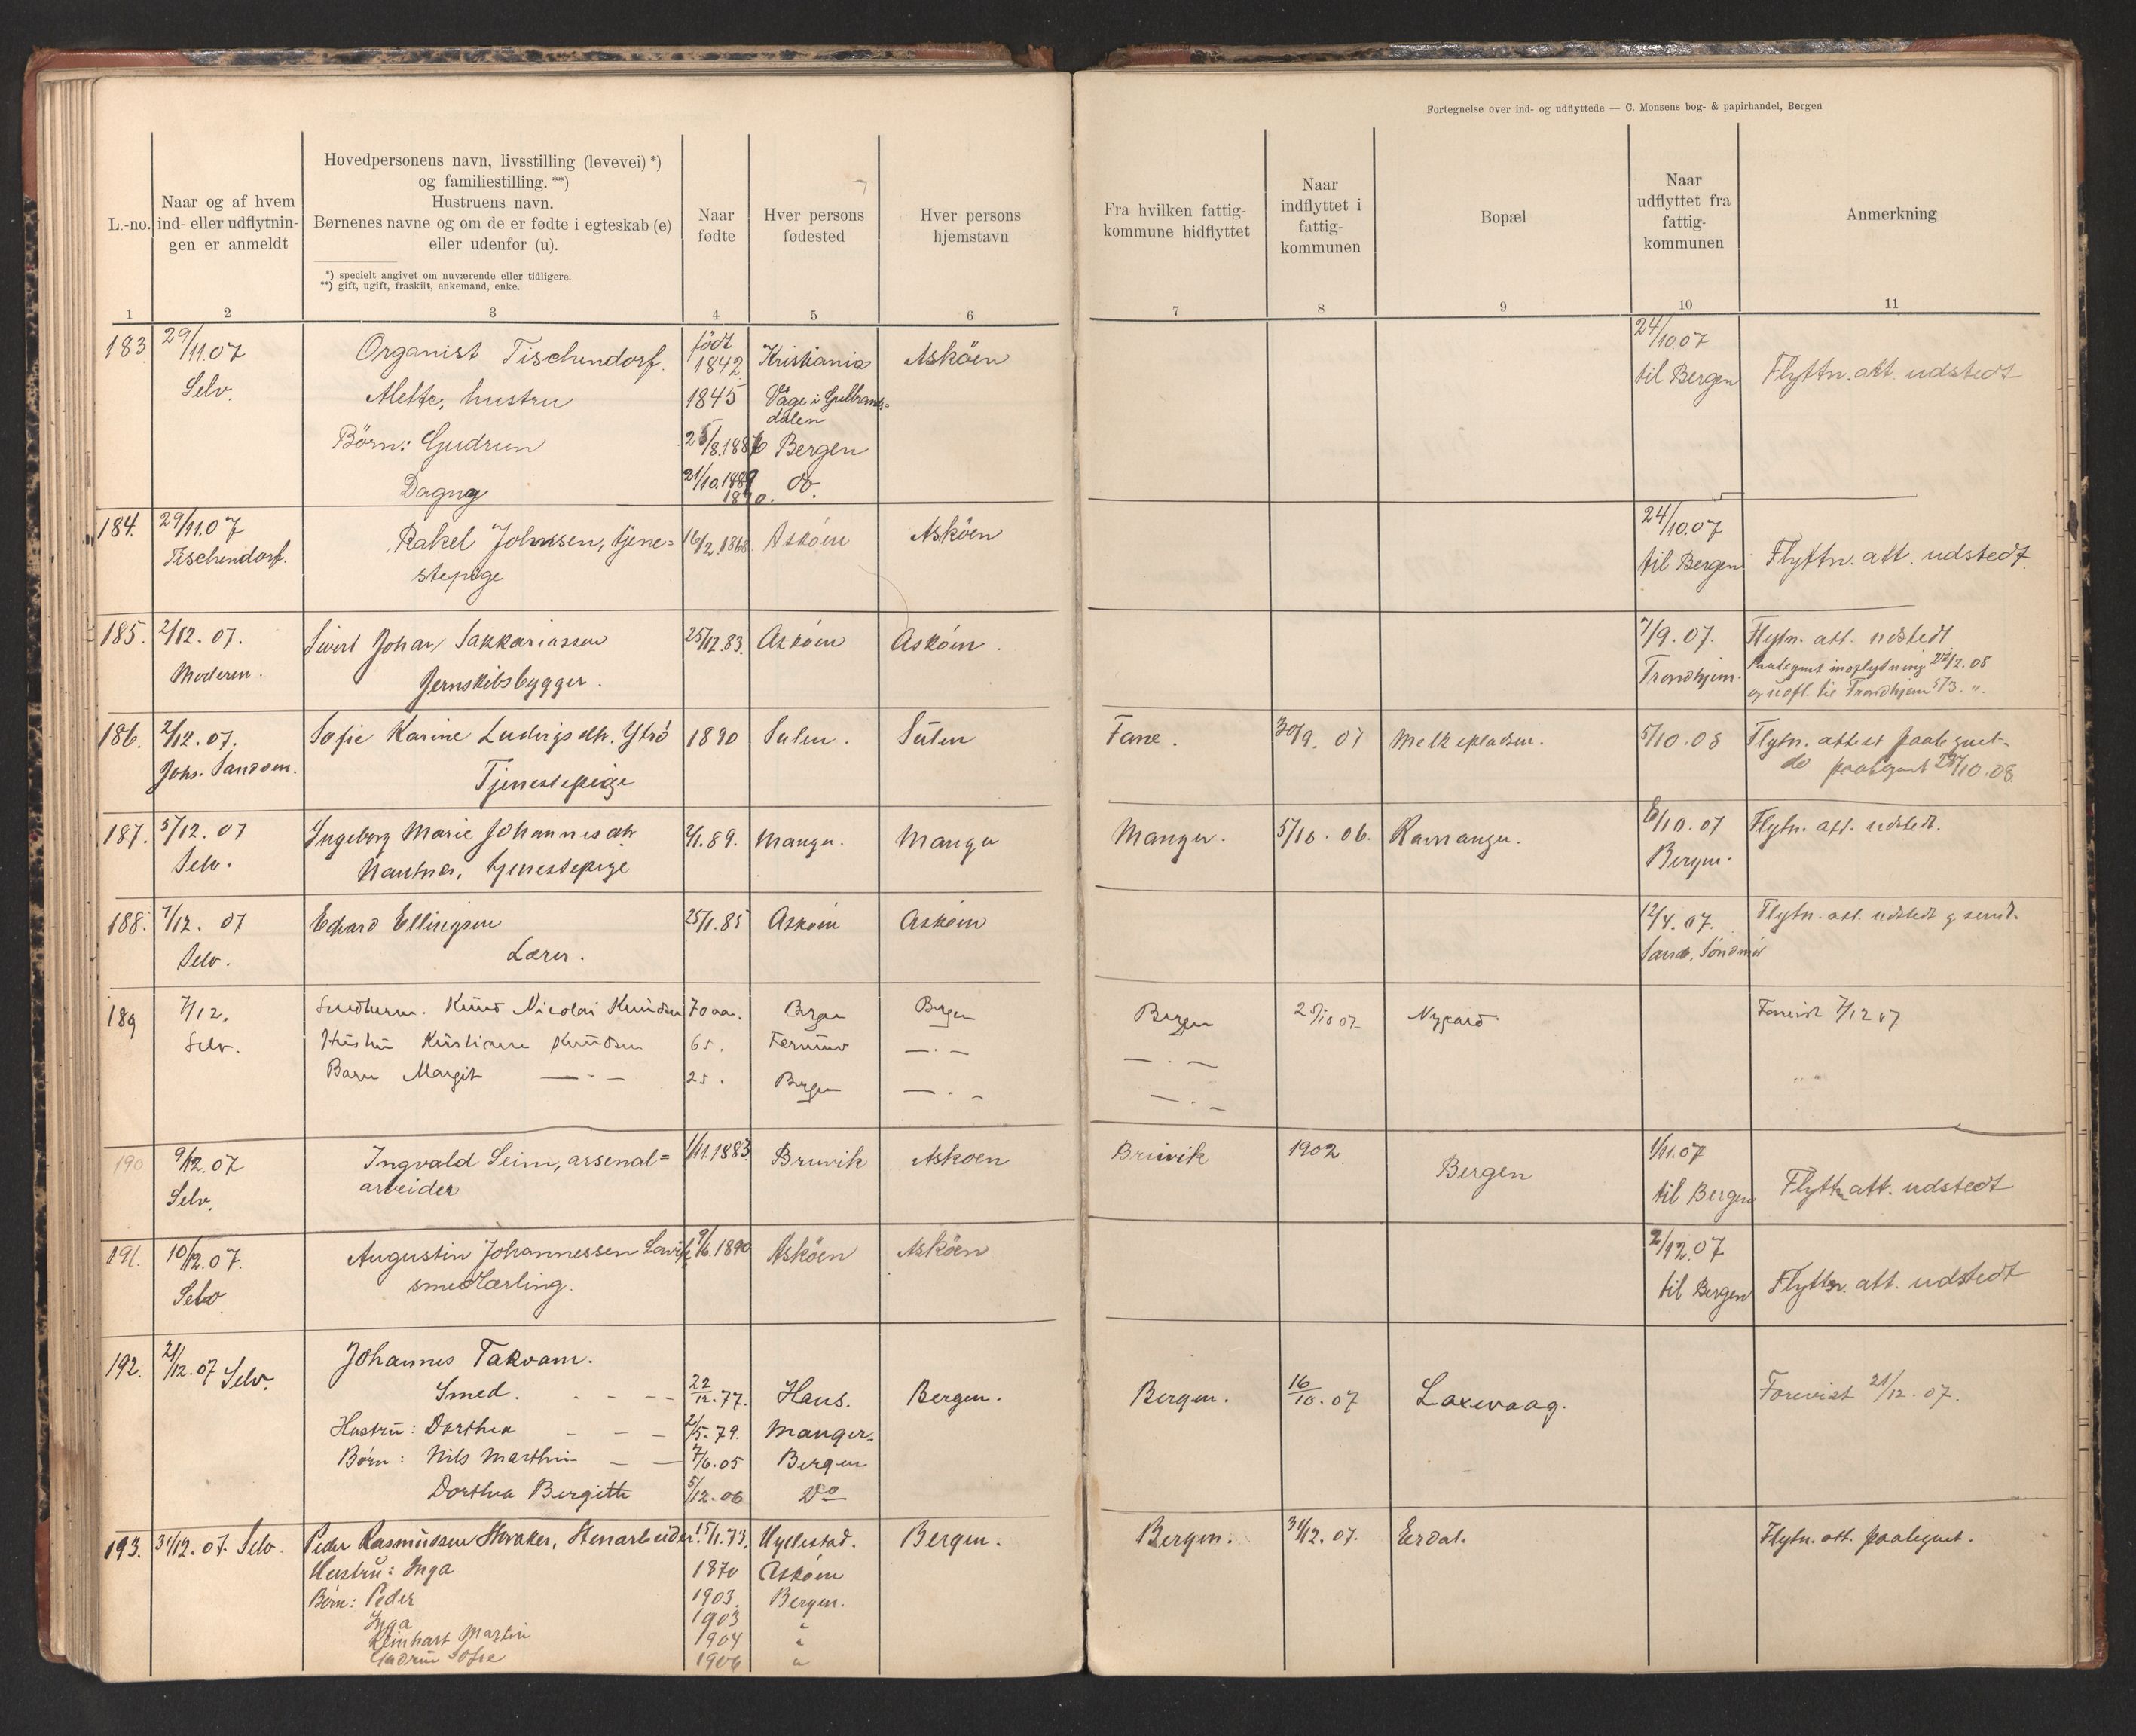 Fortegnelse over ind- og udflyttede — C. Monsens bog- & papirhandel, Bergen
L.-no.
Naar og af hvem
ind- eller udflytnin-
gen er anmeldt
Hovedpersonens navn, livsstilling (levevei) *)
og familiestilling. **)
Hustruens navn.
Børnenes navne og om de er fødte i egteskab (e)
eller udenfor (u).
*) specielt angivet om nuværende eller tidligere.
**) gift, ugift, fraskilt, enkemand, enke.
Naar
fødte
Hver persons
fødested
Hver persons
hjemstavn
Fra hvilken fattig-
kommune hidflyttet
Naar
indflyttet i
fattig-
kommunen
Bopæl
Naar
udflyttet fra
fattig-
kommunen
Anmerkning
1 2 3 4 5 6 7 8 9 10 11
183 29/11.07 Organist Tischendorf. født 1842 Kristiania Askøen 24/10.07
Selv. Mette, hustru 1845 Våge i Gulbrands-
dalen til Bergen Flyttn. att. udstedt
Børn: Gudrun 25/8.1886 Bergen
Dagny 21/10. 1890. do.
184. 29/11.07 Rakel Johnsen, tjene= 16/2.1868 Askøen Askøen 24/10.07
Tischendorf. stepige til Bergen Flyttn. att. udstedt.
185. 2/12. 07. Sivert Johan Sakkariassen 25/12.83. Askøen Askøen. 7/9. 07. Flytn. att. udstedt
Moderen. Jernskibsbygger. Trondhjem. Paategnet indflytning 22/12.08
og udfl. til Trondhjem 5/3. ".
186. 2/12. 07. Sofie Karine Ludvigsdtr. Ytrø 1890 Sulen. Sulen Fane. 30/9. 07 Melkepladsen. 5/10.08 Flytn. attest paategnet-
Johs. Sandøen. Tjenestepige do paategnet 28/10.08
187. 5/12. 07 Ingeborg Marie Johannesdtr 2/1.89. Manger. Manger Manger. 5/10. 06. Ramanger. 8/10.07 Flytn. att. udstedt.
Selv. tjenestepige Bergen.
188. 7/12. 07 Edvard Ellingsen 25/1.85 Askøen Askøen 12/4.07. Flytn. att. udstedt g sendt.
Selv. Lærer. Søndmør
189 7/12. Knud Nicolai Knudsen 70 aar. Bergen Bergen Bergen 25/10 07 Nygaard Forevist 7/12 07
Selv. Hustru Kristiane Knudsen 65. —.— —.—
Barn Margit —.— 25. Bergen —.— —.—
190 9/12.07 Ingvald Seim, arsenal= 1/11.1883. Bruvik Askøen Bruvik 1902 Bergen 1/11.07
Selv. arbeider til Bergen Flyttn att. udstedt
191. 10/12.07. Augustin Johannessen 9/6.1890 Askøen Askøen 2/12.07
Selv. smedlærling. til Bergen Flyttn. att. udstedt
192. 21/12.07 Selv. Johannes Takvam.
Smed. 22/12.77. Haus. Bergen. Bergen. 16/10.07 Laxevaag. Forevist 21/12.07.
Hustru: Dorthea 2/5.79. Manger.
Børn: Nils Marthin 7/6.05 Bergen
Dorthea Bergitte 5/12.06 Do
193. 31/12.07. Selv. Peder Rasmussen Storaker, Stenarbeider. 15/1.73. Hyllestad. Bergen. Bergen. 31/12.07. Erdal. Flytn. att. paategnet.
Hustru: Inga 1870 Askøen
Børn: Peder 1903. Bergen.
Inga 1903 "
Reinhart Martin 1904 "
Gudrun 1906 "